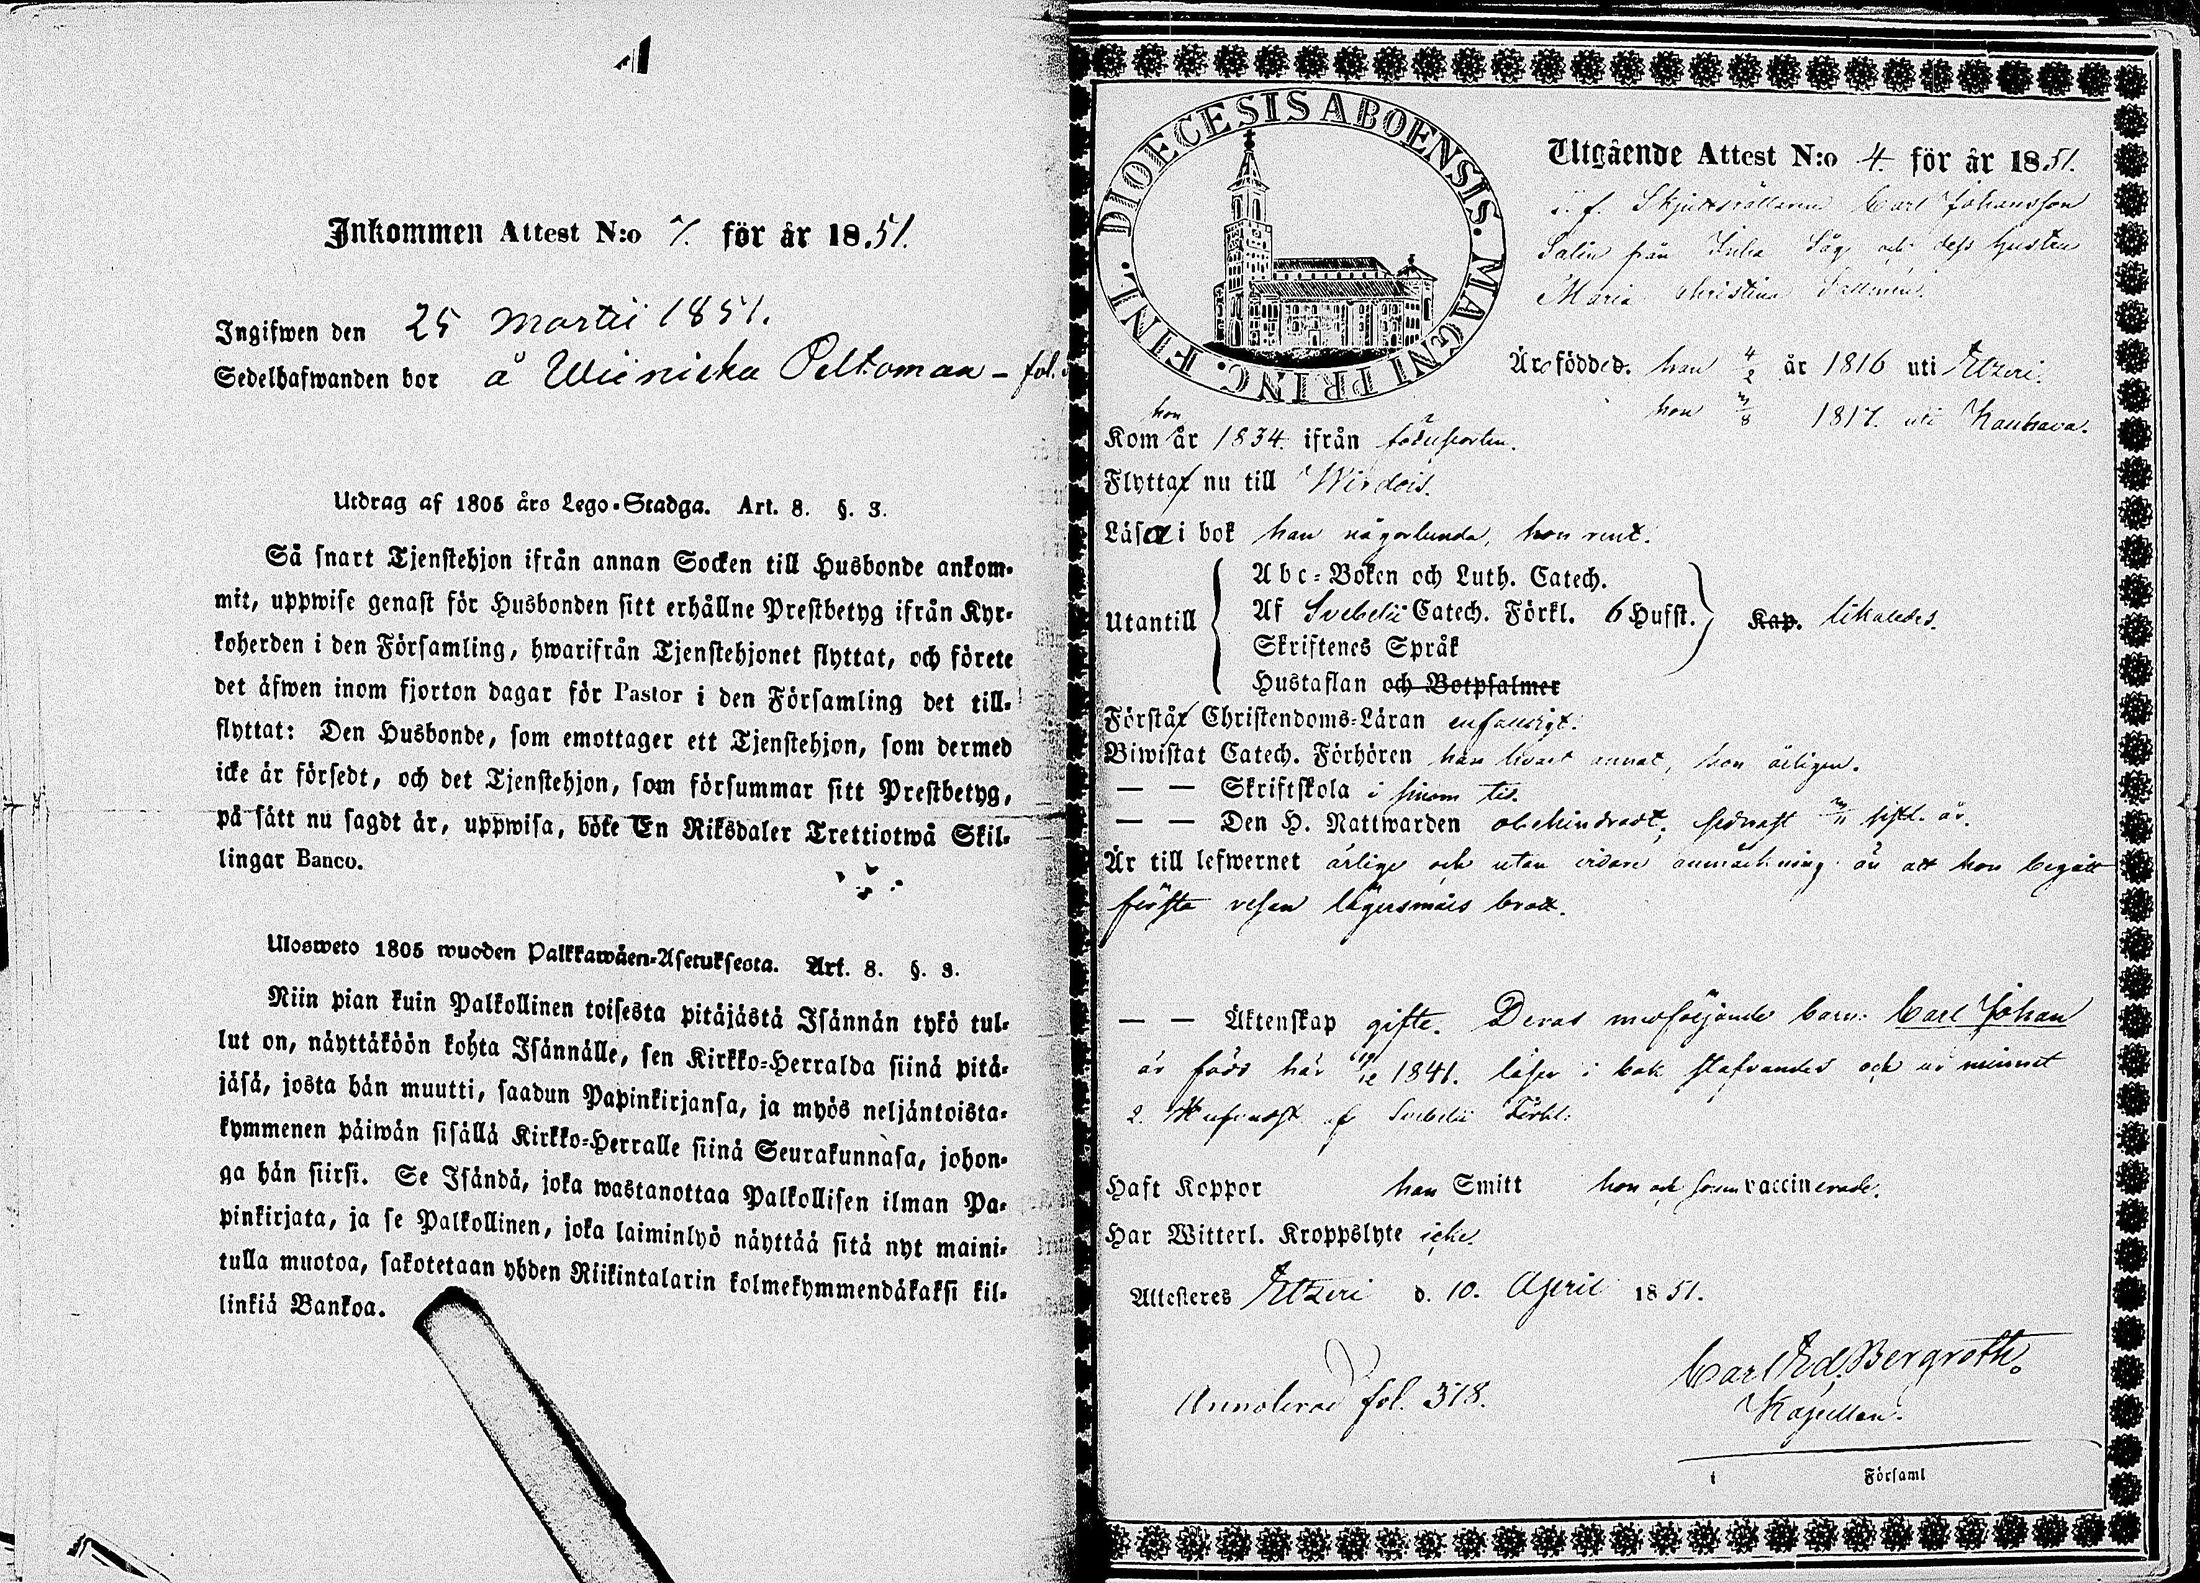 Inkommen Attest N:o 7. för år 1851.
Ingifwen den 25 Martii 1851.
Sedelhafwanden bor å Peltomaa – fol.
Utdrag af 1805 års Lego-Stadga. Art. 8. §. 3.
Så snart Tjenstehjon ifrån annan Socken till Husbonde ankom-
mit, uppwise genast för Husbonden sitt erhållne Prestbetyg ifrån Kyr-
koherden i den Församling, hwarifrån Tjenstehjonet flyttat, och förete
det äfwen inom fjorton dagar för Pastor i den Församling det till-
flyttat: Den Husbonde, som emottager ett Tjenstehjon, som dermed
icke är försedt, och det Tjenstehjon, som försummar sitt Prestbetyg,
på sätt nu sagdt är, uppwisa, böte En Riksdaler Trettiotwå Skil-
lingar Banco.
Ulosweto 1805 wuoden Palkkawäen-Asetuksesta. Art. 8. §. 3.
Niin pian kuin Palkollinen toisesta pitäjästä Isännän tykö tul-
lut on, näyttäköön kohta Isännälle, sen Kirkko-Herralda siinä pitä-
jäsä, josta hän muutti, saadun Papinkirjansa, ja myös neljäntoista-
kymmenen päiwän sisällä Kirkko-Herralle siinä Seurakunnasa, johon-
ga hän siirsi. Se Isändä, joka wastanottaa Palkollisen ilman Pa-
pinkirjata, ja se Palkollinen, joka laiminlyö näyttää sitä nyt maini-
tulla muotoa, sakotetaan yhden Riikintalarin kolmekymmendäkaksi kil-
linkiä Bankoa.
DIOECESIS ABOENSIS. MAGNI PRINC. FINL.
Utgående Attest N:o 4. för år 1851.
f. Carl Johansson
Salin från Såg och dess hustru
Maria Christina
Äro födde. han 4/2 år 1816 uti Etzeri.
hon /8 1817. uti Kauhava.
hon
Kom år 1834 ifrån födseorten.
Flytta nu till Wirdois.
Läsa i bok han någorlunda, hon rent.
Abc-Boken och Luth. Catech.
Utantill Af Svebelii Catech. Förkl. 6 Hufst. Kap. likaledes.
Skriftenes Språk
Hustaflan och Botpsalmer
Förstå Christendoms-Läran enfaldigt.
Biwistat Catech. Förhören han hvart annat, hon årligen.
— — Skriftskola i sinom tid.
— — Den H. Nattwarden obehindradt, sednast sistl. år.
Är till lefwernet ärlige och utan vidare anmärkning än att hon begått
första resan lägersmåls brott.
— — Äktenskap gifte. Deras medföljande barn: Carl Johan
är född här /12 1841. läser i bok stafvandes och ur minnet
2. Hufvudst. af Svebelii Förkl.
Haft Koppor han Smitt hon och sonen vaccinerade.
Har Witterl. Kroppslyte icke.
Attesteres Etzeri d. 10. April 1851.
Carl Ed. Bergroth.
Annoterad fol. 318. Kapellan.
i Församl